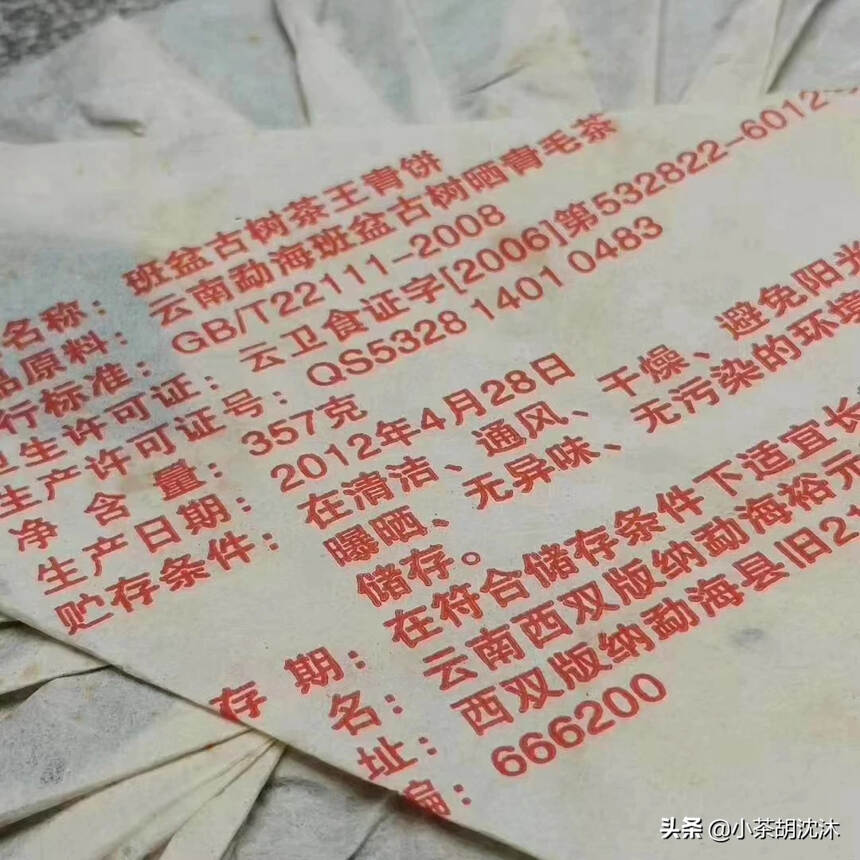 名称：班盆古树茶王青饼
品原料：云南勐海班盆古树晒青毛茶
行标准：GB/T22111-2008
卫生许可证：云卫食证字[2006]第532822-6012
生产许可证号：QS5328 1401 0483
净含量：357克
生产日期：2012年4月28日
贮存条件：在清洁、通风、干燥、避免阳光
曝晒、无异味、无污染的环境
储存。
存期：在符合储存条件下适宜长
名：云南西双版纳勐海裕元
址：西双版纳勐海县旧21
编：666200
头条 @小茶胡沈沐